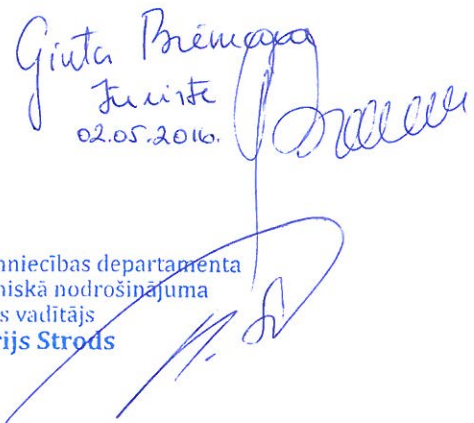 Ginta
Juriste
02.05.2016.
niecības departamenta
niskā nodrošinājuma
s vadītājs
rijs Strods